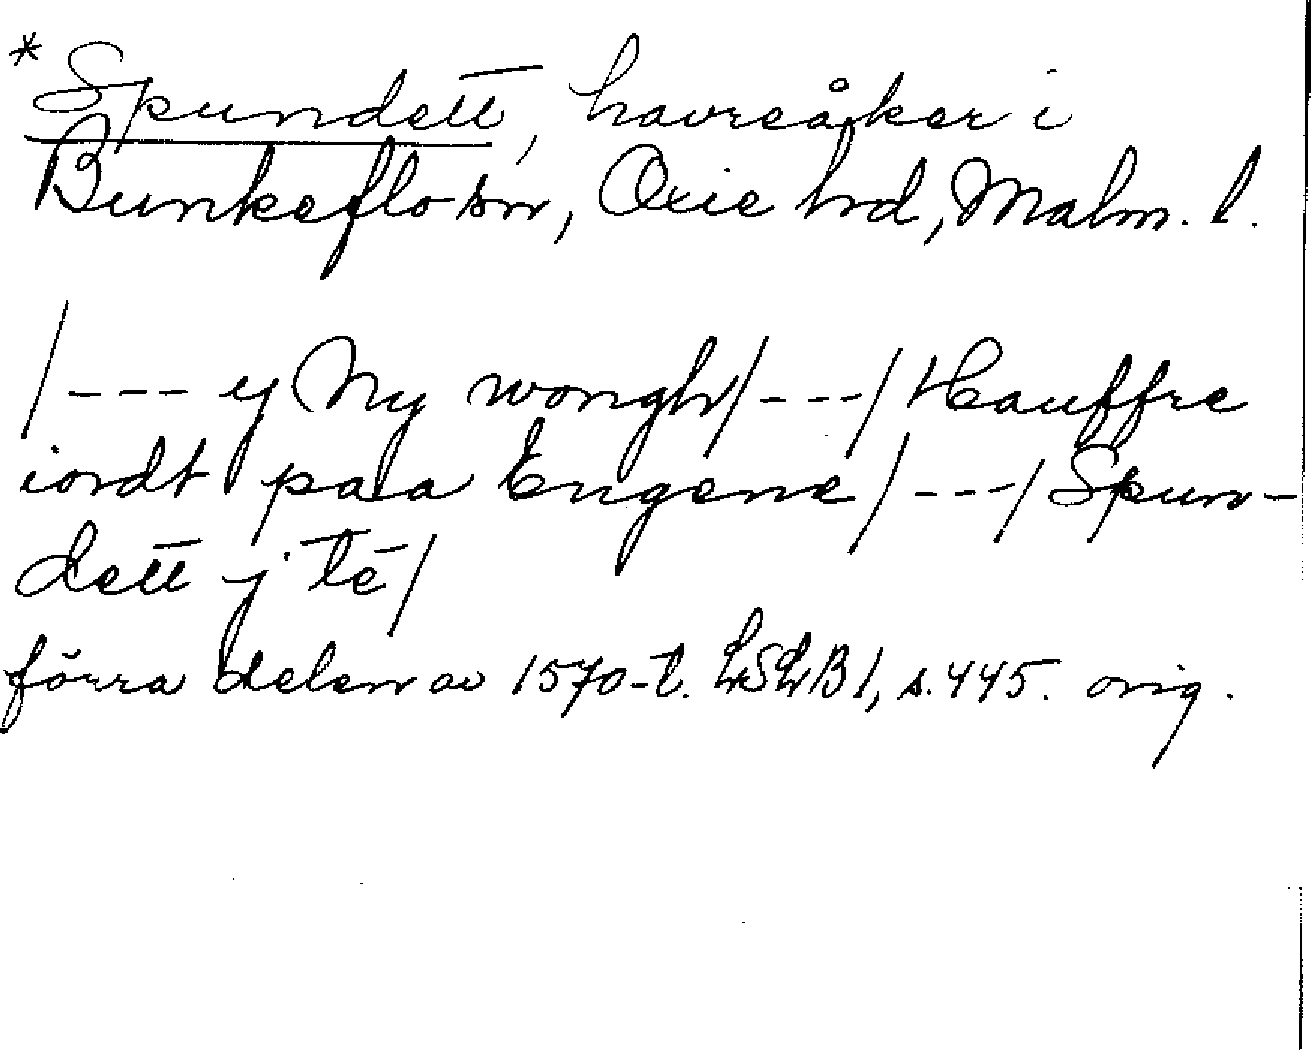 *Spundett, havreåker i
Bunkeflo sn, Oxie hd, Malm. l.
/--- y Ny wongh/---/Hauffre
iordt paa Engene/---/Spun-
dett j te/
förra delen av 1570-t. LSLB 1, s. 445. orig.